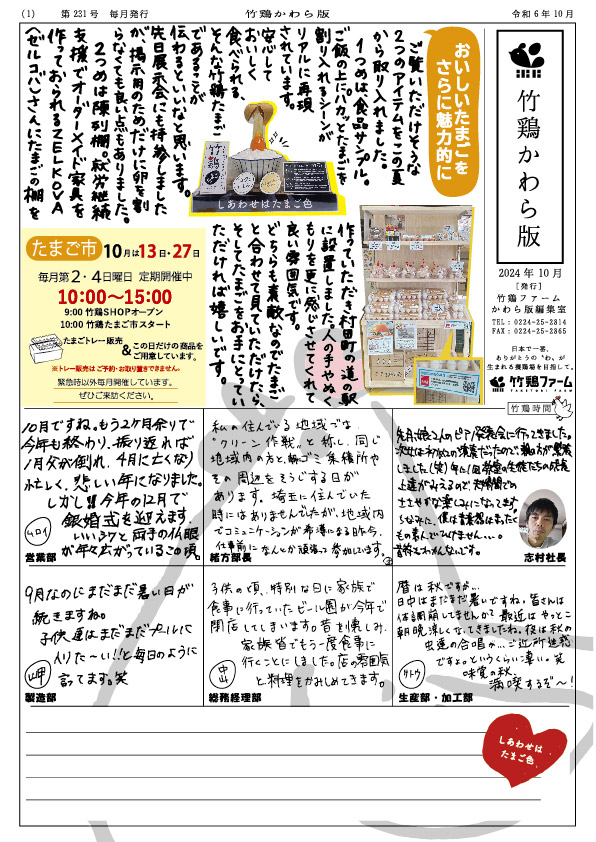 (1) 第231号 毎月発行 竹鶏かわら版 令和6年10月
竹鶏かわら版
2024年10月
[発行]
竹鶏ファーム
かわら版編集室
TEL：0224-25-2814
FAX：0224-25-2865
日本で一番、
ありがとうの〝わ〟が
生まれる養鶏場を目指して。
竹鶏ファーム
TAKETORI FARM
おいしいたまごを
さらに魅力的に
ご覧いただけそうな
2つのアイテムをこの夏
から取り入れました。
1つめは、食品サンプル。
ご飯の上にパカッとたまごを
割り入れるシーンが
リアルに再現
されています。
安心して
おいしく
食べられる、
そんな竹鶏たまご
であることが
伝わるといいなと思います。
先日展示会にも持参しました
が、掲示用のためだけに卵を割
らなくても良い点もありました。
2つめは陳列棚。就労継続
支援でオーダーメイド家具を
作っておられるZELKOVA
(ゼルコバ)さんにたまごの棚を
作っていただき村田町の道の駅
に設置しました。人の手やぬく
もりを更に感じさせてくれて
良い雰囲気です。
どちらも素敵なのでたまご
と合わせて見ていただけたら、
そしてたまごをお手にとってい
ただければ嬉しいです。
しあわせはたまご色
たまご市 10月は13日・27日
毎月第2・4日曜日 定期開催中
10:00〜15:00
9:00 竹鶏SHOPオープン
10:00 竹鶏たまご市スタート
たまごトレー販売
&この日だけの商品を
ご用意しています。
※トレー販売は ご予約・お取り置きできません。
緊急時以外毎月開催しています。
ぜひご来訪ください。
竹鶏時間
10月ですね。もう2ヶ月余りで
今年も終わり、振り返れば
1月父が倒れ、4月に亡くなり
忙しく、悲しい年になりました。
しかし!!今年の12月で
銀婚式を迎えます
いいふウフと両手の仏眼
が年々広がっているこの頃。
ムロイ
営業部
私の住んでいる地域では、
"クリーン作戦"と称し、同じ
地域内の方と、朝ゴミ集積所や
その周辺をそうじする日が
あります。埼玉に住んでいた
時にはありませんでしたが、地域内
でコミュニケーションが希薄になる昨今、
仕事前になんとか頑張って参加しています。
緒方部長
先月娘2人のピアノ発表会に行ってきました。
志村社長
9月なのにまだまだ暑い日が
続きますね。
子供達はまだまだプールに
入りた〜い!!と毎日のように
言ってます。笑
山岬
製造部
子供の頃、特別な日に家族で
食事に行っていたビール園が今年で
閉店してしまいます。昔を懐しみ、
家族皆でもう一度食事に
行くことにしました。店の雰囲気
と料理をかみしめてきます。
中山
総務経理部
暦は秋ですが…
日中はまだまだ暑いですね。皆さんは
体調崩してませんか？最近はやっとこ
朝晩涼しくなってきましたね。夜は秋の
虫達の合唱が…ご近所迷惑
ですよっというくらい凄い。笑
味覚の秋
満喫するぞ〜!
サトウ
生産部・加工部
しあわせは
たまご色